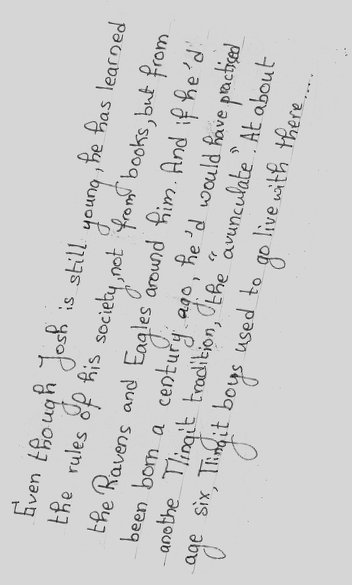 Even though Josh is still young, he has learned
the rules of his society, not from books, but from
the Ravens and Eagles around him. And if he'd
been born a century ago, he'd would have practised
anothe Tlingit tradition, "the "avunculate". At about
age six, Tlingit boys used to go live with there.....